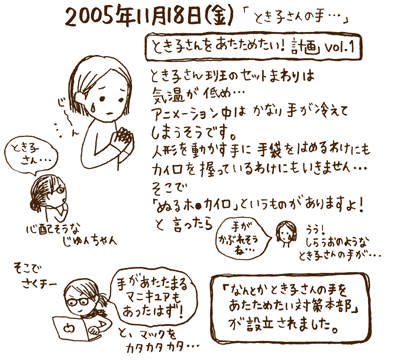 2005年11月18日(金)「とき子さんの手…」
とき子さんをあたためたい!計画 vol.1
とき子さん班のセットまわりは
気温が低め…
アニメーション中は かなり手が冷えて
しまうそうです。
人形を動かす手に手袋をはめるわけにも
カイロを握っているわけにもいきません…
そこで
「ぬるホ●カイロ」というものがありますよ!
と言ったら
じーん…
とき子
さん…
心配そうな
じゅんちゃん
手が
かぶれそう
ね…
うう!
しらうおのような
とき子さんの手が…
そこで
さくチー
手があたたまる
マニキュアも
あったはず!
と、マックを
カタカタカタ…
「なんとかとき子さんの手を
あたためたい対策本部」
が設立されました。